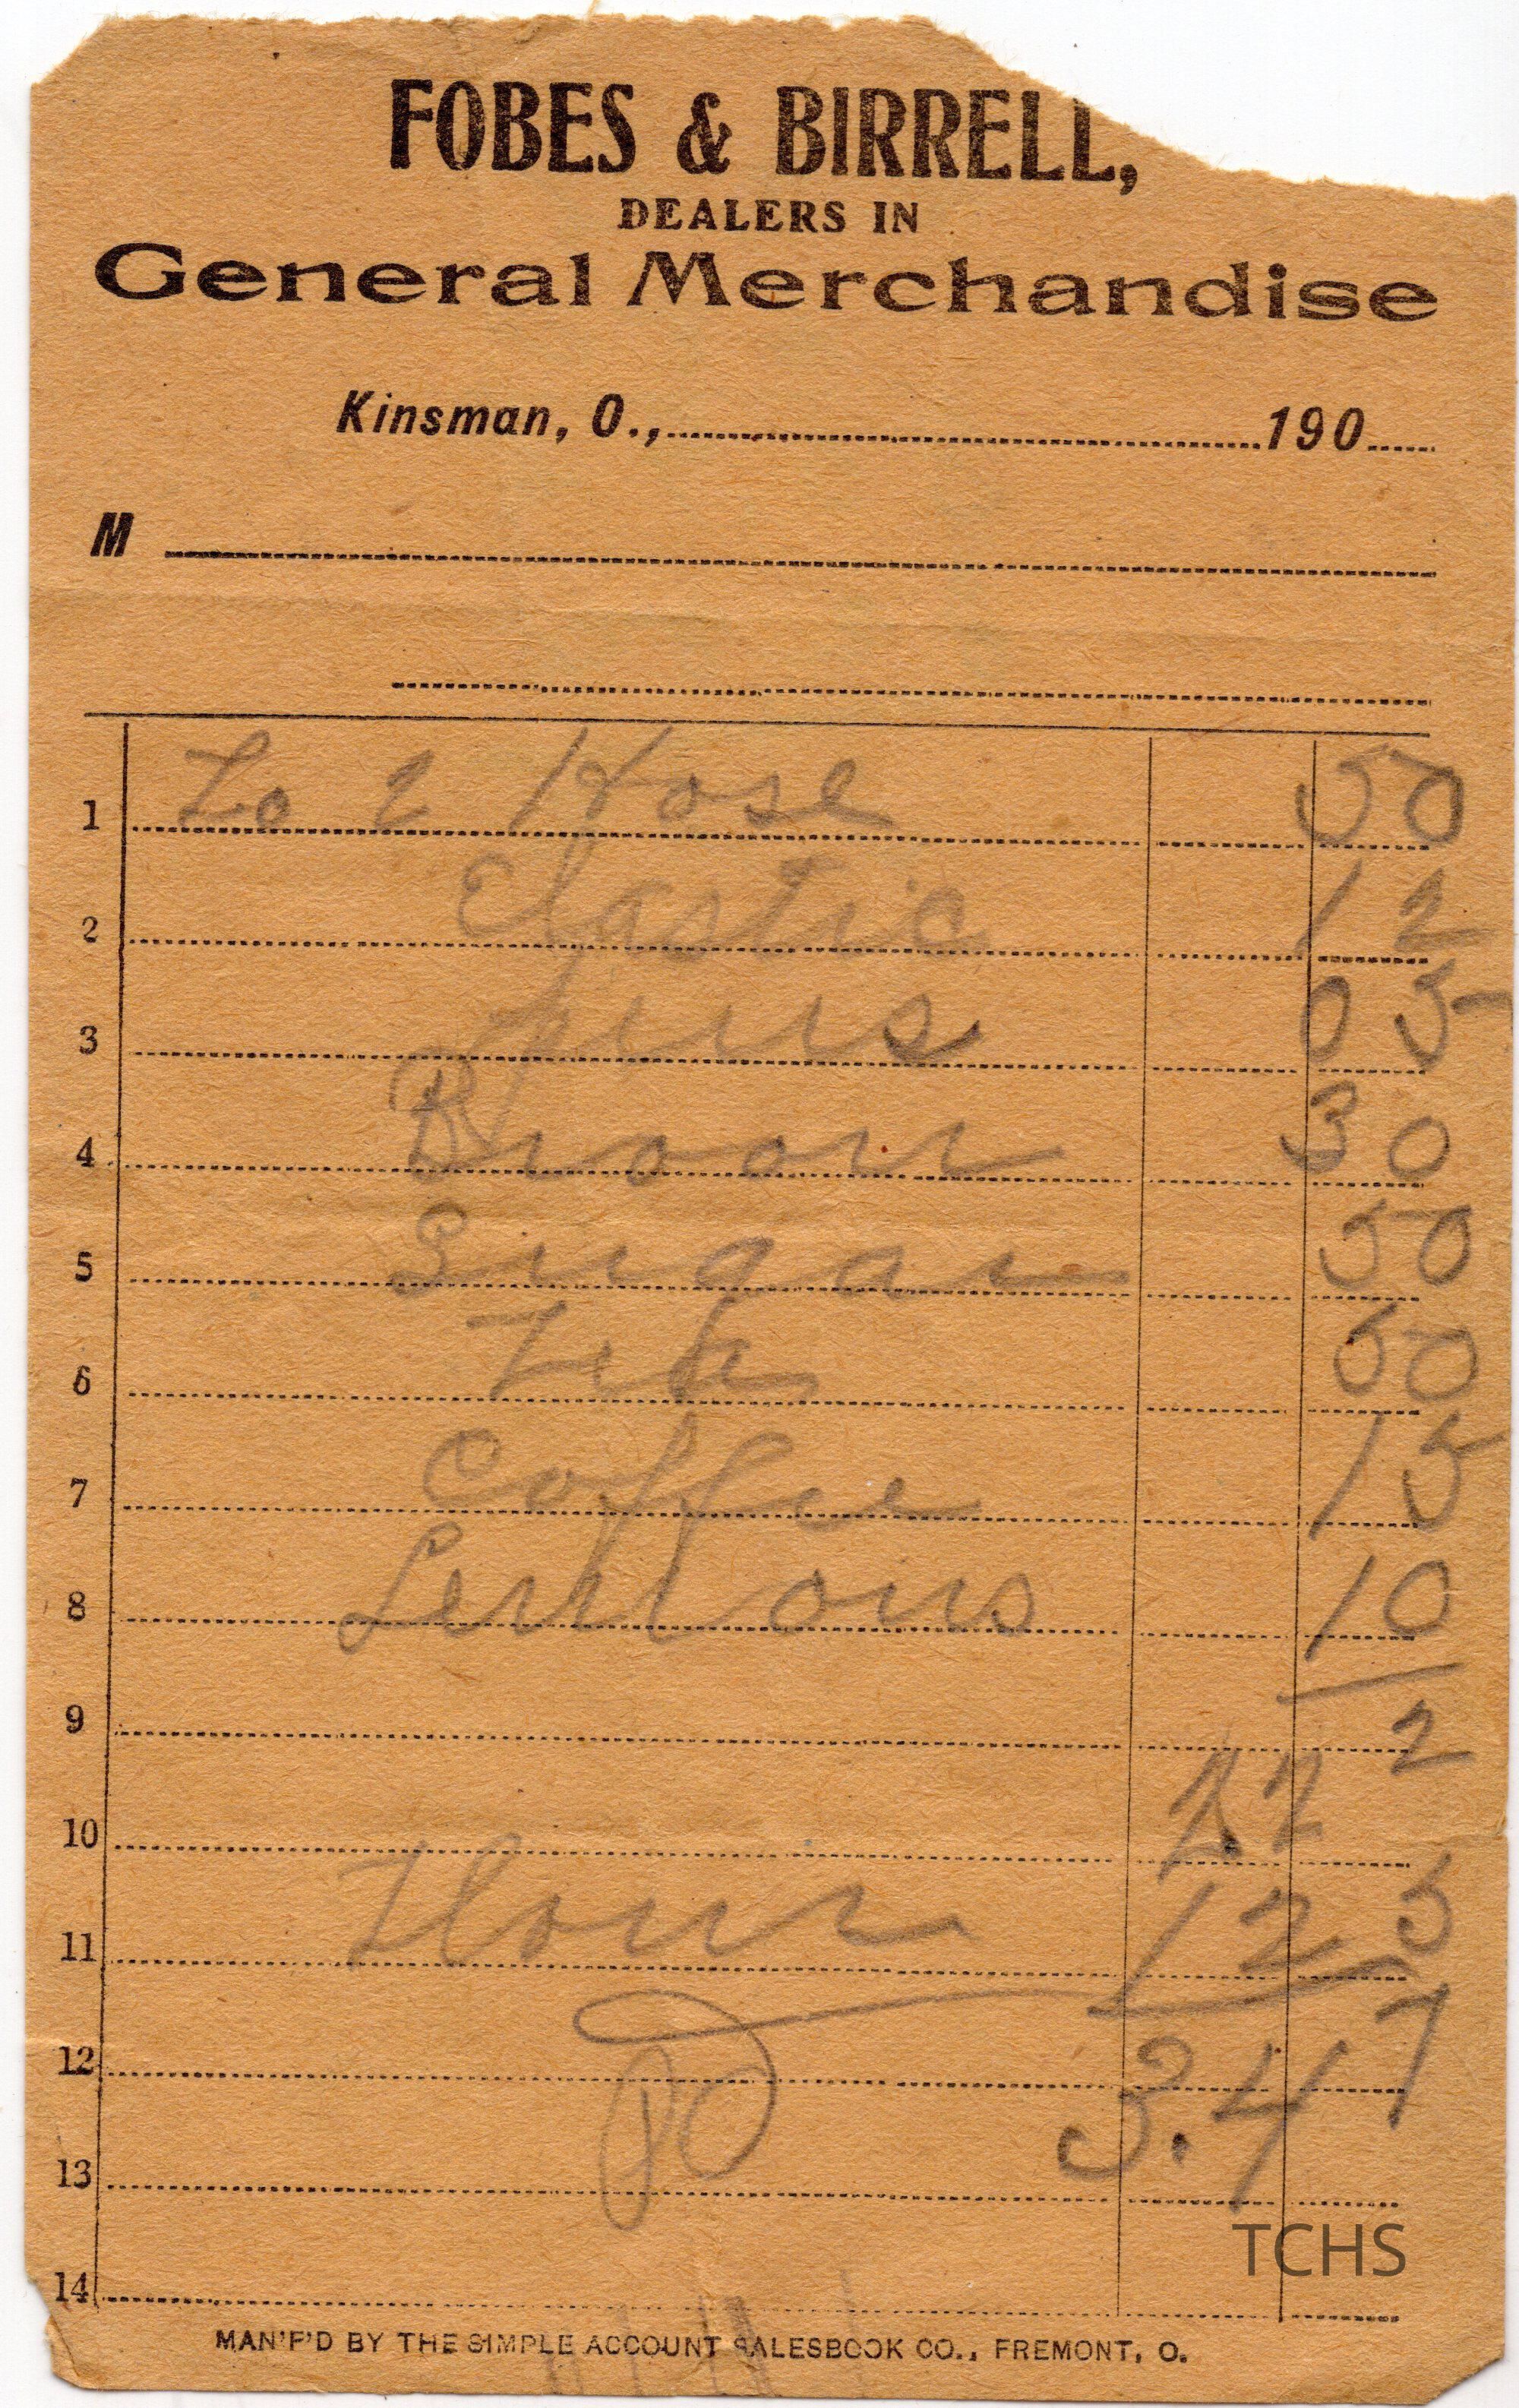 FOBES & BIRRELL,
DEALERS IN
General Merchandise
Kinsman, O., 190
M
1 To 2 Hose 50
2 Elastic 12
3 Pins 05
4 Broom 30
5 Sugar 50
6 Tea 50
7 Coffee 15
8 Lemons 10
9 2
10 22
11 Flour 125
12
3.47
13
TCHS
14
MAN'F'D BY THE SIMPLE ACCOUNT SALESBOOK CO., FREMONT, O.